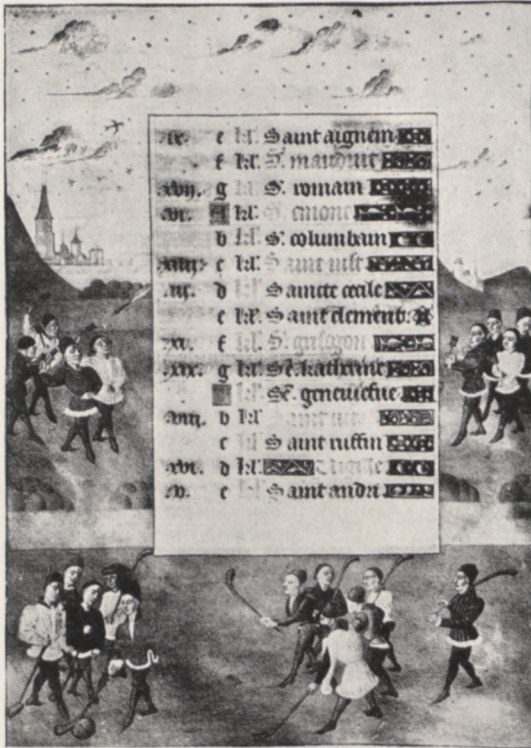 ix. e kl'. Saint aignein
f kl'. S'. mandruit
xvij. g kl'. S'. romain
vi. A kl'. S'. emont
b kl'. S'. columbain
xiiij. c kl'. Saint
iij. d Saincte cecile
e kl'. Saint clement.
xi. f kl'. S'. grisogon
xix. g kl'. Ste. katherine
kl'. Ste. geneuiefue
viij. b kl' Saint
c Saint ruffin
xvi. d kl'. Vigille
v. e Saint andri